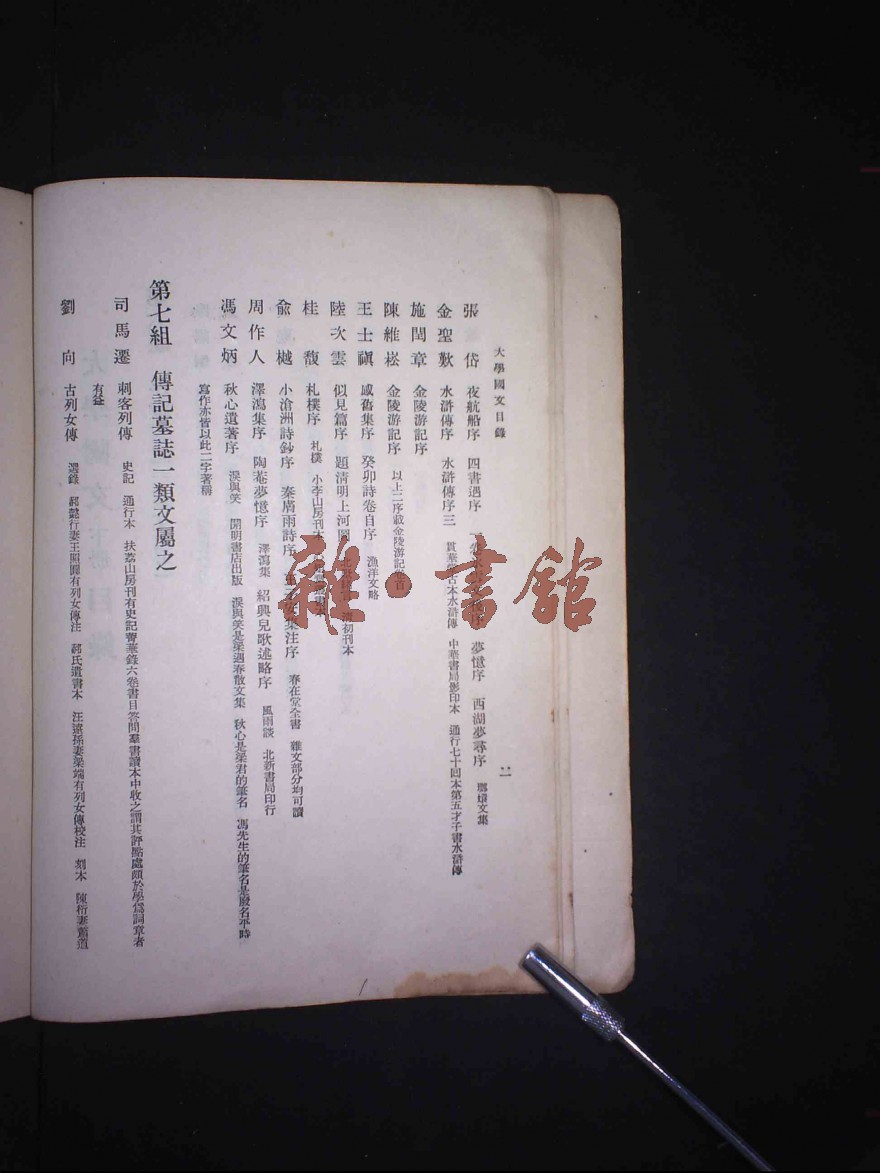 大學國文目錄
二
張岱 夜航船序 四書遇序 夢憶序 西湖夢尋序 瑯嬛文集
金聖歎 水滸傳序 水滸傳序三 貫華堂古本水滸傳 中華書局影印本 通行七十回本第五才子書水滸傳
施閏章 金陵游記序
陳維崧 金陵游記序 以上二序載金陵游記
王士禛 感舊集序 癸卯詩卷自序 漁洋文略
陸次雲 似見篇序 題清明上河圖 初刊本
桂馥 札樸序 札樸 小李山房刊本
俞樾 小滄洲詩鈔序 秦膚雨詩序 集注序 春在堂全書 雜文部分均可讀
周作人 澤瀉集序 陶菴夢憶序 澤瀉集 紹興兒歌述略序 風雨談 北新書局印行
馮文炳 秋心遺著序 淚與笑 開明書店出版 淚與笑是梁遇春散文集 秋心是梁君的筆名 馮先生的筆名是廢名平時
寫作亦皆以此二字著稱
第七組 傳記墓誌一類文屬之
司馬遷 刺客列傳 史記 通行本 扶荔山房刊有史記菁華錄六卷書目答問羣書讀本中收之謂其評點處頗於學為詞章者
有益
劉向 古列女傳 選錄 郝懿行妻王照圓有列女傳注 郝氏遺書本 汪遠孫妻梁端有列女傳校注 刻本 陳衍妻蕭道
雜·書館